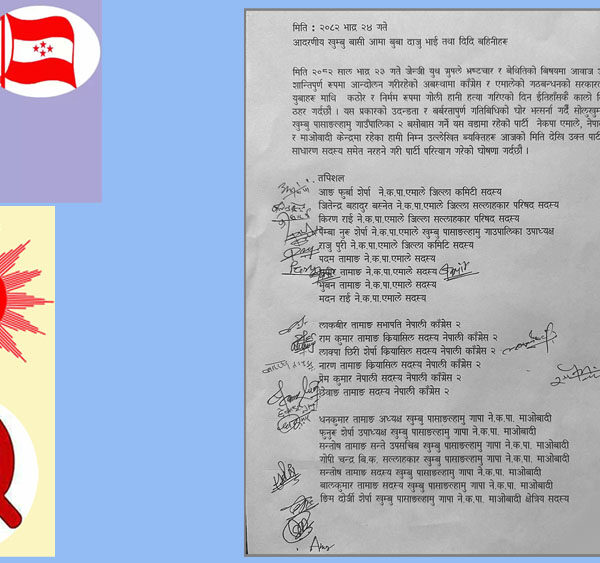 मिति : २०८२ भाद्र २४ गते
आदरणीय खुम्बु बासी आमा बुबा दाजु भाई तथा दिदि बहिनीहरू
मिति २०८२ साल भाद्र २३ गते जेन्जी युथ ग्रुपले भ्रष्टचार र बेथितिको बिषयमा आवाज
शान्तिपुर्ण रूपमा आन्दोलन गरीरहेको अबस्थामा काँग्रेस र एमालेको गठबन्धनको सरकार
युबाहरू माथि कठोर र निर्मम रूपमा गोली हानी हत्या गरिएको दिन ईतिहाँसकै कालो
ठहर गर्दछौं । यस प्रकारको उदन्डता र बर्बरतापुर्ण गतिबिधिको घोर भर्त्सना गर्दै
खुम्बु पासाङल्हामु गाउँपालिका २ बसोबास गर्ने यस वडामा रहेको पार्टी नेकपा एमाले,
र माओबादी केन्द्रमा रहेका हामी निम्न उल्लेखित ब्यक्तिहरू आजको मिति देखि उक्त
साधारण सदस्य समेत नरहने गरी पार्टी परित्याग गरेको घोषणा गर्दछौं ।
तपिशल
आङ फुर्बा शेर्पा ने.क.पा.एमाले जिल्ला कमिटी सदस्य
जितेन्द्र बहादुर बस्नेत ने.क.पा.एमाले जिल्ला सल्लाहकार परिषद सदस्य
किरण राई ने.क.पा.एमाले जिल्ला सल्लाहकार परिषद सदस्य
पेम्बा नुरू शेर्पा ने.क.पा.एमाले खुम्बु पासाङल्हामु गाउपालिका उपाध्यक्ष
राजु पुरी ने.क.पा.एमाले जिल्ला कमिटि सदस्य
पदम तामाङ ने.क.पा.एमाले सदस्य
तामाङ ने.क.पा.एमाले सदस्य
भुबन तामाङ ने.क.पा.एमाले सदस्य
मदन राई ने.क.पा.एमाले सदस्य
लाकबीर तामाङ सभापति नेपाली काँग्रेस २
राम कुमार तामाङ क्रियासिल सदस्य नेपाली काँग्रेस २
लाक्पा छिरी शेर्पा क्रियासिल सदस्य नेपाली काँग्रेस २
नारण तामाङ क्रियासिल सदस्य नेपाली काँग्रेस २
प्रेम कुमार नेपाली सदस्य नेपाली काँग्रेस २
छेवाङ तामाङ सदस्य नेपाली काँग्रेस २
धनकुमार तामाङ अध्यक्ष खुम्बु पासाङल्हामु गापा ने.क.पा. माओबादी
फुनुरू शेर्पा उपाध्यक्ष खुम्बु पासाङल्हामु गापा ने.क.पा. माओबादी
सन्तोष तामाङ सन्ते उपसचिब खुम्बु पासाङल्हामु गापा ने.क.पा. माओबादी
गोपी चन्द्र बि.क. सल्लाहकार खुम्बु पासाङल्हामु गापा ने.क.पा. माओबादी
सन्तोष तामाङ सदस्य खुम्बु पासाङल्हामु गापा ने.क.पा. माओबादी
बालकुमार तामाङ सदस्य खुम्बु पासाङल्हामु गापा ने.क.पा. माओबादी
ङिम दोर्जी शेर्पा खुम्बु पासाङल्हामु गापा ने.क.पा. माओबादी क्षेत्रिय सदस्य